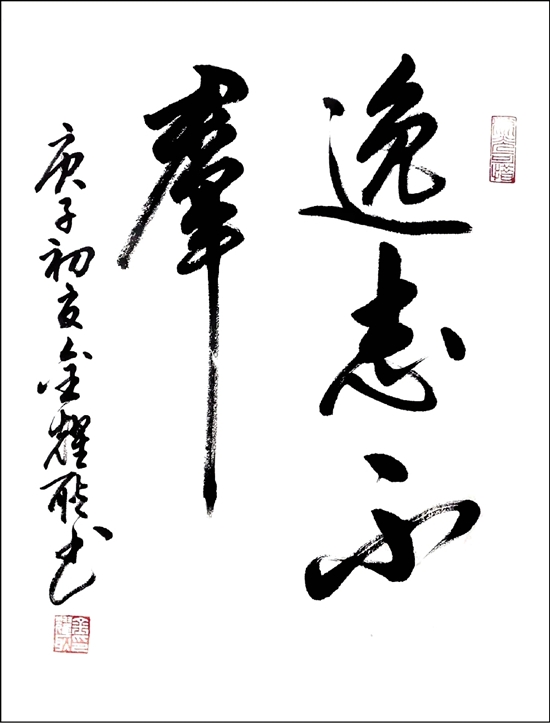 逸志不
羣
庚子初夏金耀耿书